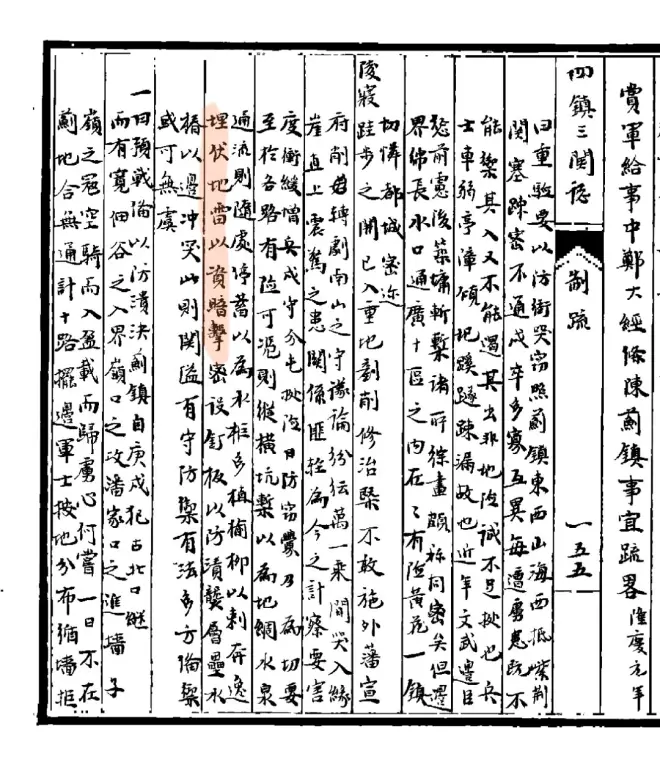 賞軍給事中鄭大經條陳薊鎮事宜疏畧 隆慶元年
四鎮三關誌 制疏 一五五
曰重敺要以防衝突竊照薊鎮東西山海西抵紫荆
關塞疎密不通戍卒多寡互異每遭虜患既不
能禦其入又不能遏其出非地險誠不足據也兵
士卑弱亭漳頽圮蹊隧疎漏故也近年文武邊臣
懲前慮後築墉斬塹諸所綜畫頗稱周密矣但邊
界綿長水口通廣十區之內在〻有險黃花一鎮
切憐都城密邇
陵寢跬步之間已入重地剷削修治槩不敢施外藩宣
府削轉劇南山之守議論紛紜萬一乘間突入緣
崖直上震驚之患關係匪輕為今之計察要害
度衝緩增兵戍守分屯據險日防竊釁乃為切要
至於各路有險可憑則縱橫坑塹以為地網水泉
通流則隨處停蓄以為水柜多植榆柳以剌奔逸
埋伏地雷以資暗擊密設釘板以防潰襲層壘水
樁以邊冲突此則關隘有守防禦有法多方俻禦
或可無虞
一曰預戰俻以防潰決薊鎮自庚戌犯古北口繼
而有寬佃谷之入界嶺口之攻潘家口之進墻子
嶺之寇空騎而入盈載而歸虜心何嘗一日不在
薊地合無通計十路擺邊軍士按地分布循墻拒